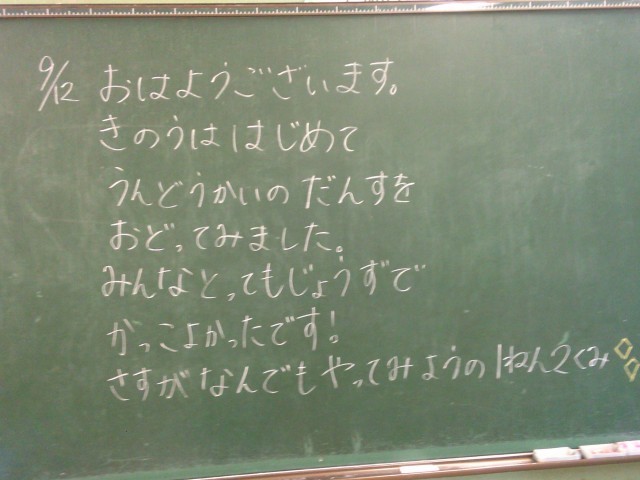 9/12 おはようございます。
きのうは はじめて
うんどうかいの だんすを
おどってみました。
みんなとってもじょうずで
かっこよかったです!
さすが なんでも やってみようの 1ねん2くみ